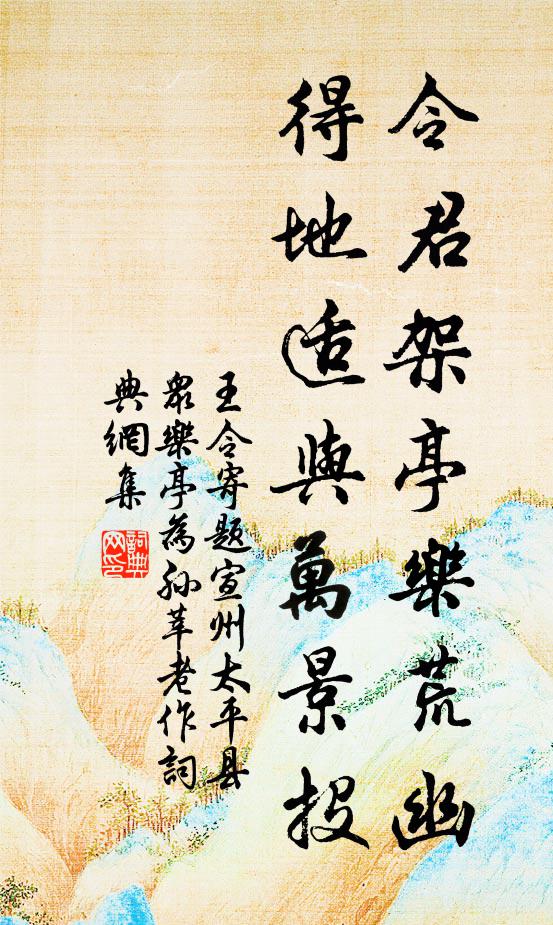 令君架亭樂荒幽
得地适與萬景投
王令寄題宣州太平县
眾樂亭為孙莘老作詞
典網集
詞典
网印